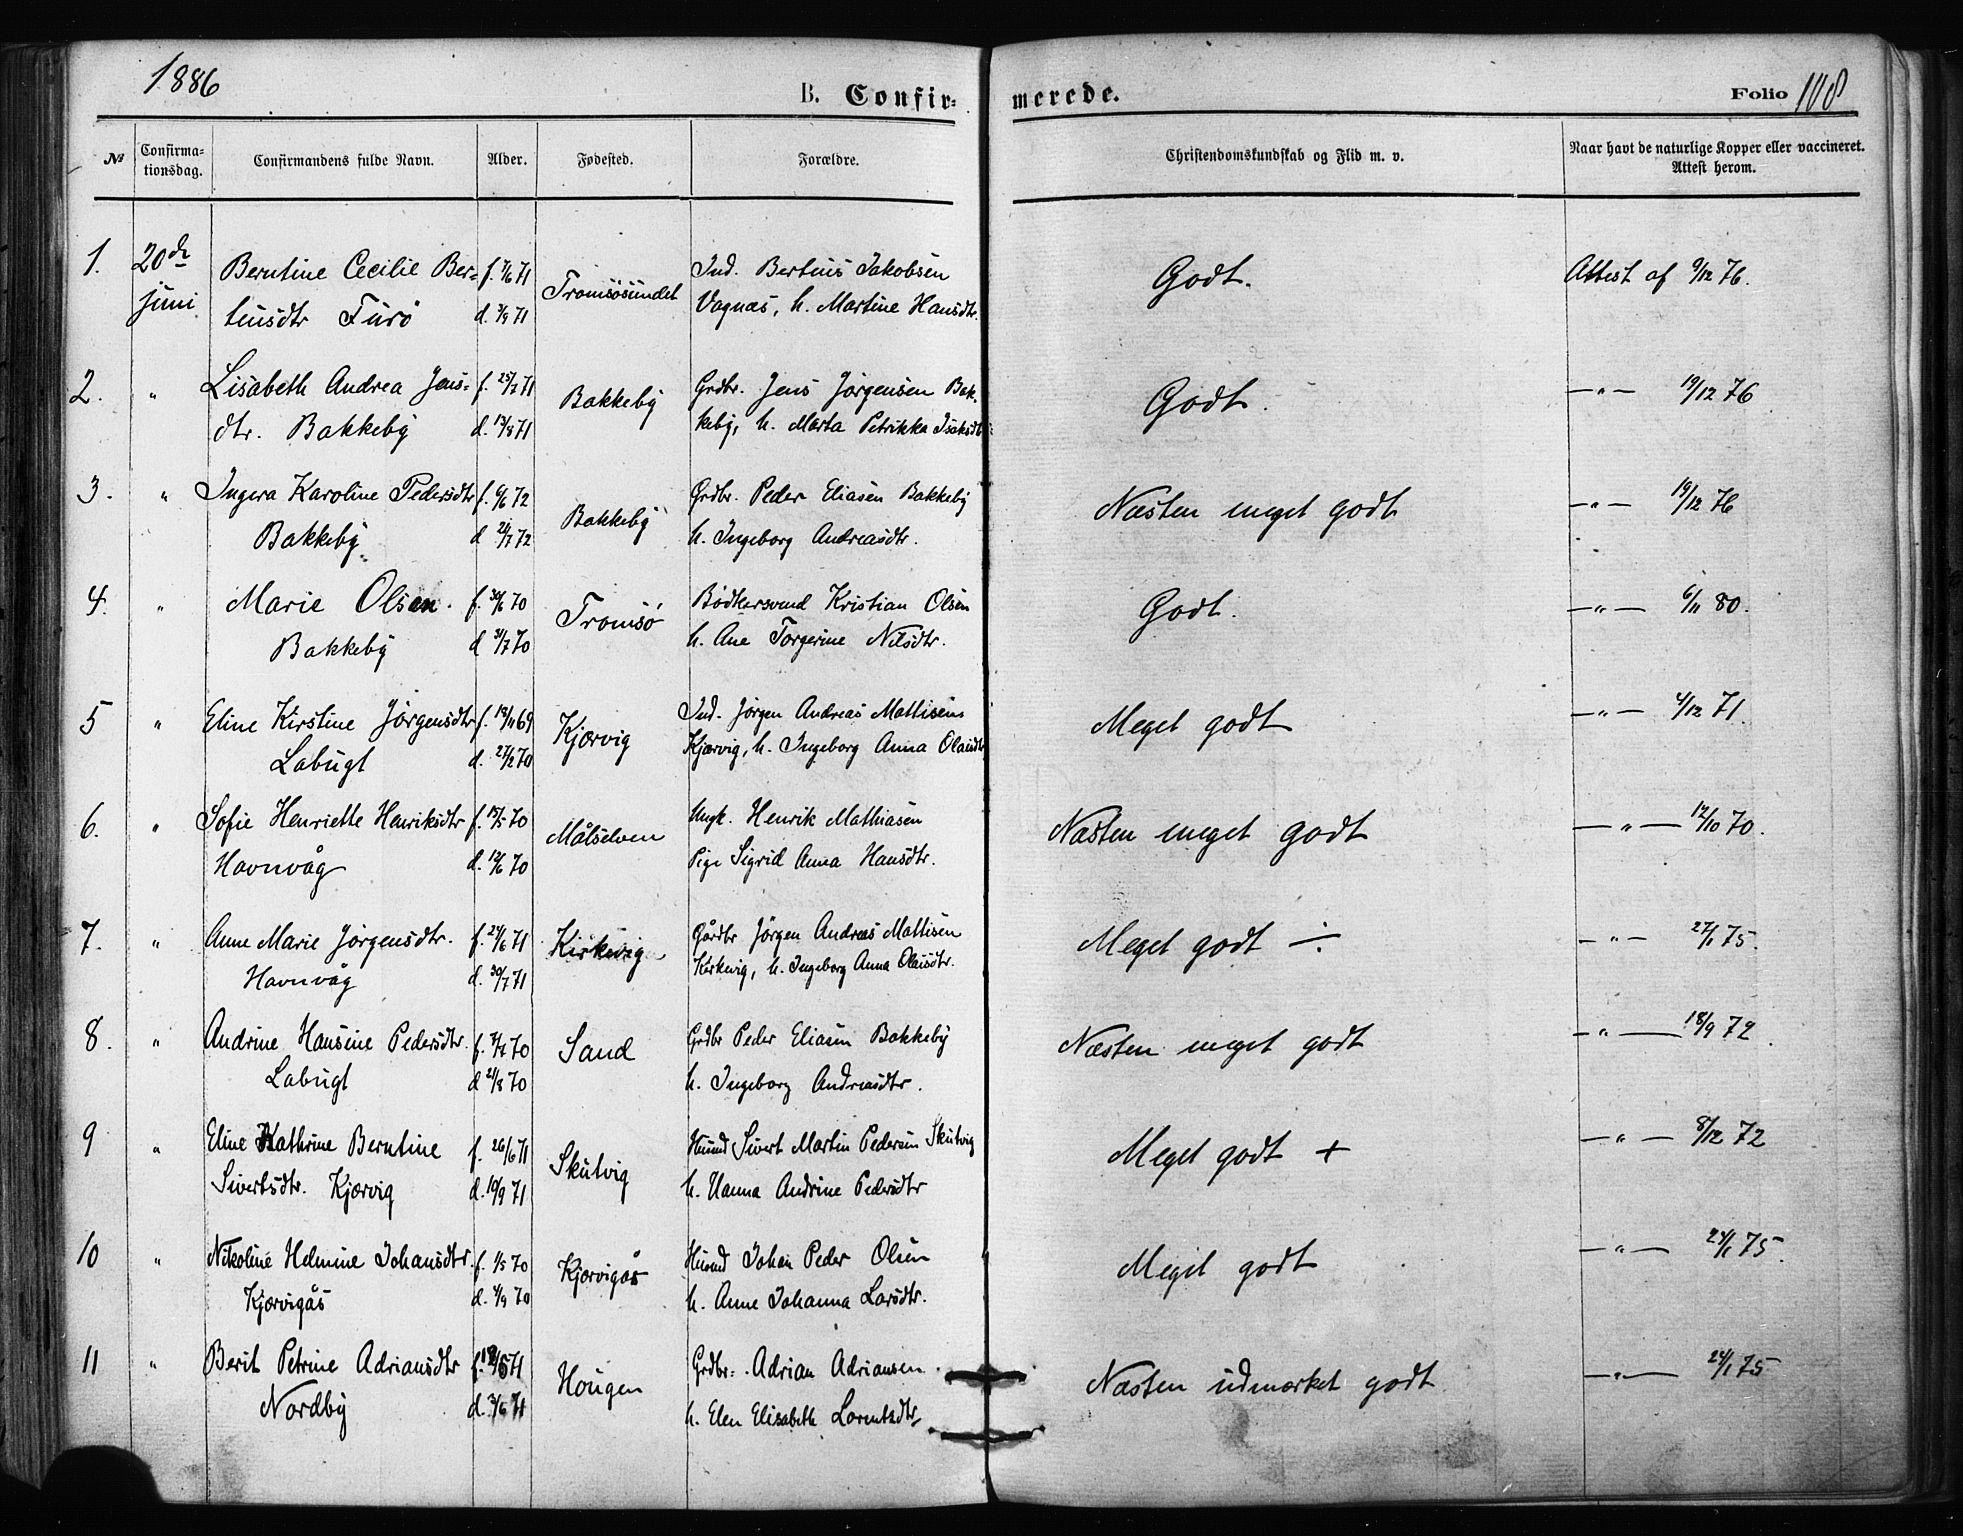 1886
B. Confir-
merede.
Folio 108
№
Confirma-
tionsdag.
Confirmandens fulde Navn.
Alder.
Fødested.
Forældre.
Christendomskundskab og Flid m. v.
Naar havt de naturlige Kopper eller vaccineret.
Attest herom.
1. 20de Berntine Cecilie Ber- f. 7/6 71 Tromsøsundet Ind. Bertius Jakobsen Godt. Attest af 9/12 76.
juni tiusdtr Furø d. 3/9 71 Vagnæs, h. Martine Hansdtr.
2. " Lisabeth Andrea Jens- f. 25/7 71 Bakkeby Grdbr. Jens Jørgensen Bak- Godt. —"— 19/12 76
dtr. Bakkeby d. 13/8 71 keby, h. Marta Petrikka Isaksdtr.
3. " Ingera Karoline Pedersdtr f. 6/6 72 Bakkeby Grdbr. Peder Eliasen Bakkeby Næsten meget godt —"— 19/12 76
Bakkeby. d 21/7 72 h. Ingeborg Andreasdtr.
4. " Marie Olsen. f. 30/6 70 Tromsø Bødkersvend Kristian Olsen Godt. —"— 6/11 80.
Bakkeby d 31/7 70 h. Ane Torgerine Nilsdtr.
5 " Eline Kirstine Jørgensdtr f. 13/11 69 Kjærvig Ind. Jørgen Andreas Mattisens Meget godt —"— 4/12 71.
Labugt d. 27/2 70 Kjærvig, h. Ingeborg Anna Olaisdtr
6. " Sofie Henriette Henriksdtr f. 15/5 70 Målselven Ungk. Henrik Mathiasen Næsten meget godt —"— 12/10 70.
Havnvåg d. 12/6 70 Pige Sigrid Anna Hansdtr.
7. " Anne Marie Jørgensdtr. f. 24/6 71 Kirkevig Gårdbr Jørgen Andreas Mattisen Meget godt ÷ —"— 27/1 75.
Havnvåg d. 30/7 71 Kirkevig, h. Ingeborg Anna Olaisdtr.
8. " Andrine Hansine Pedersdtr. f. 3/7 70 Sand Grdbr Peder Eliasen Bakkeby Næsten meget godt —"— 18/9 72.
Labugt d 21/8 70 h. Ingeborg Andreasdtr.
9 " Eline Kathrine Berntine f. 26/6 71 Skutvig Husmd Sivert Martin Pedersen Skutvig Meget godt + —"— 8/12 72
Sivertsdtr. Kjærvig d. 10/9 71 h. Hanna Andrine Pedersdtr
10 " Nikoline Helmine Johansdtr. f. 1/5 70 Kjærvigås Husmd Johan Peder Olsen Meget godt —"— 24/1 75.
Kjærvigås d. 4/9 70 h. Anne Johanna Larsdtr.
11 " Berit Petrine Adriansdtr f. 71 Hougen Grdbr. Adrian Adriansen Næsten udmærket godt —"— 24/1 75
Nordby d. 71 h. Elen Elisabeth Lorentsdtr